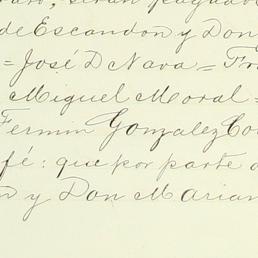 seran pagado
de Escandon y Don
= José D Nava = Fr
Miguel Moral =
Fermin Gonzalez Co
fé: que por parte d
n y Don Marian